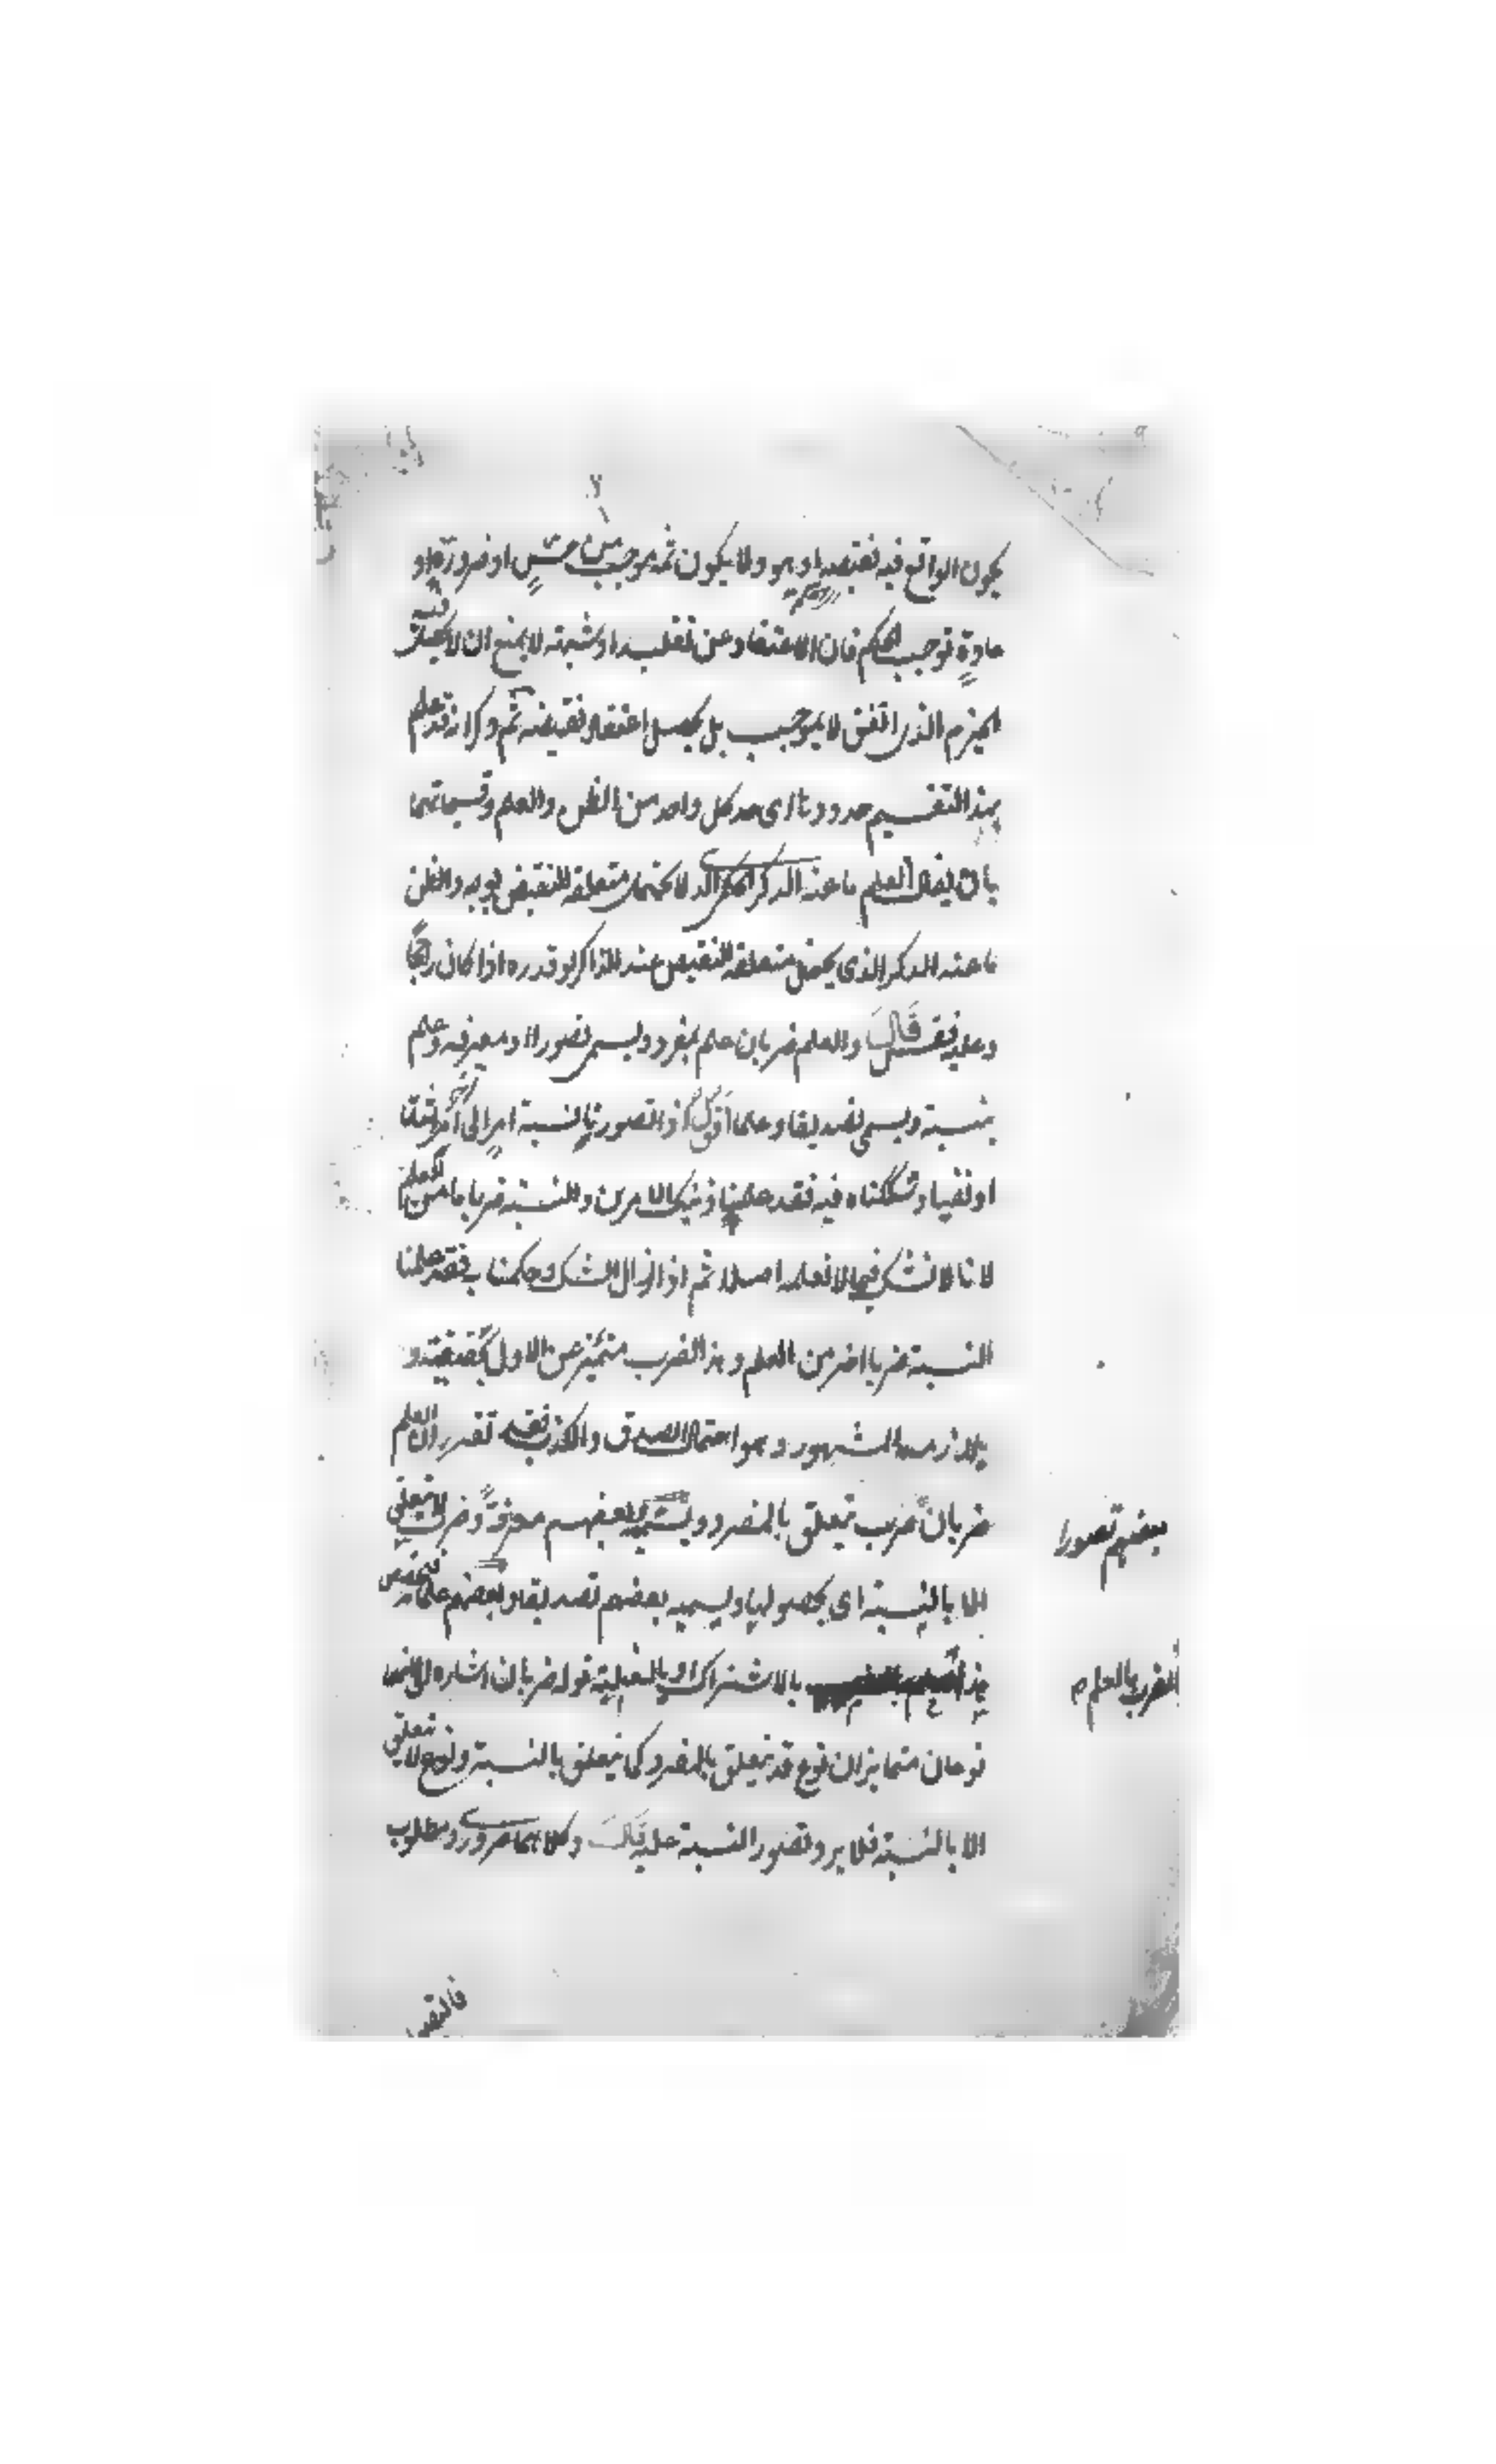 يكون الواقع فيه نقيضه او هو ولا يكون ثمه موجب من حس او ضرورة او
عادة توجب الحكم فان الاعتقاد عن تقليد او شبهة لا يمنع ان
الجزم الذى اتفق لا بموجب بل يحصل اعتقاد نقيضه ثم ذكر انه قد علم
بهذا التقسيم حدودها اى حد كل واحد من الظن والعلم وقسيماتهما
بان يقال العلم ما عنه الذكر الحكمى الذى لا يحتمل متعلقه النقيض بوجه والظن
ما عنه الذكر الذى يحتمل متعلقه النقيض عند الذاكر لو قدره اذا كان راجحا
وعليه فقس قال والعلم ضربان علم بمفرد ويسمى تصورا او معرفة وعلم
بنسبة ويسمى تصديقا وعلما اقول اذا تصورنا نسبة امر الى آخر اثباتا
او نفيا وشككنا فيه فقد علمنا ذينك الامرين والنسبة ضربا ما من العلم
لانا لا نشك فيما لا نعلمه اصلا ثم اذا زال الشك وحكمنا به فقد علمنا
النسبة ضربا اخر من العلم وهذا الضرب متميز عن الاول بحقيقته و
بلازمه المشهور وهو احتمال الصدق والكذب فقد تقرر ان العلم
ضربان ضرب يتعلق بالمفرد ويسميه بعضهم معرفة وضرب لا يتعلق
الا بالنسبة اى بحصولها ويسميه بعضهم تصديقا وبعضهم علما فيخص
هذا بالاشتراك او بالغلبة قوله ضربان اشارة الى انهما
نوعان متمايزان نوع قد يتعلق بالمفرد كما يتعلق بالنسبة ونوع لا يتعلق
الا بالنسبة فلا يرد تصور النسبة عليه قال وكلاهما ضرورى ومطلوب
بعضهم تصورا
الضرب بالعلم
فالتصور